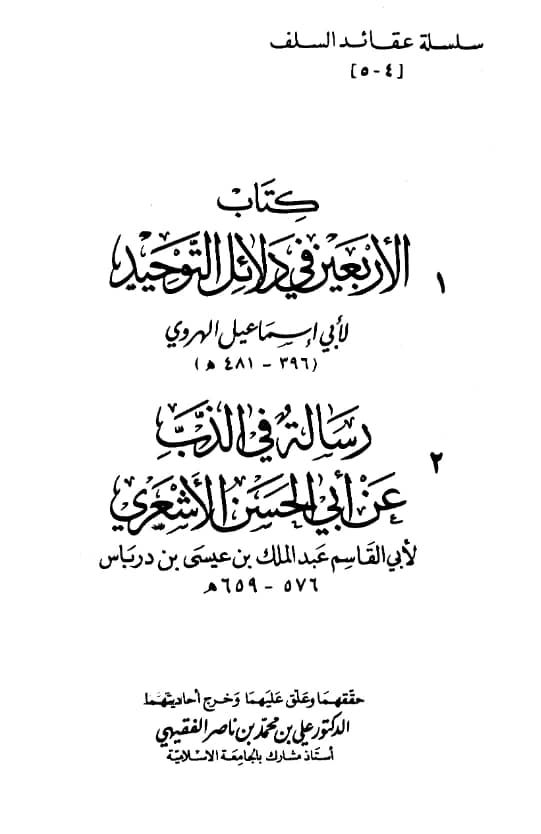 سلسلة عقائد السلف
[٤-٥]
كِتَابْ
١ الأَرْبَعِيْن فِي دَلَائِلِ التَّوْحِيْدِ
لأبي إسماعيل الهروي
(٣٩٦ - ٤٨١ هـ)
٢ رسَالةٌ في الذَّبِّ
عَنْ أَبي الحَسَن الأَشْعَري
لأبي القَاسِم عَبد الملك بن عيسى بن درباس
٥٧٦ - ٦٥٩ هـ
حققهما وعلق عليهما وخرج أحاديثهما
الدكتور علي بن محمّد بن ناصر الفقيهي
أستاذ مشارك بالجامعة الاسلاميّة